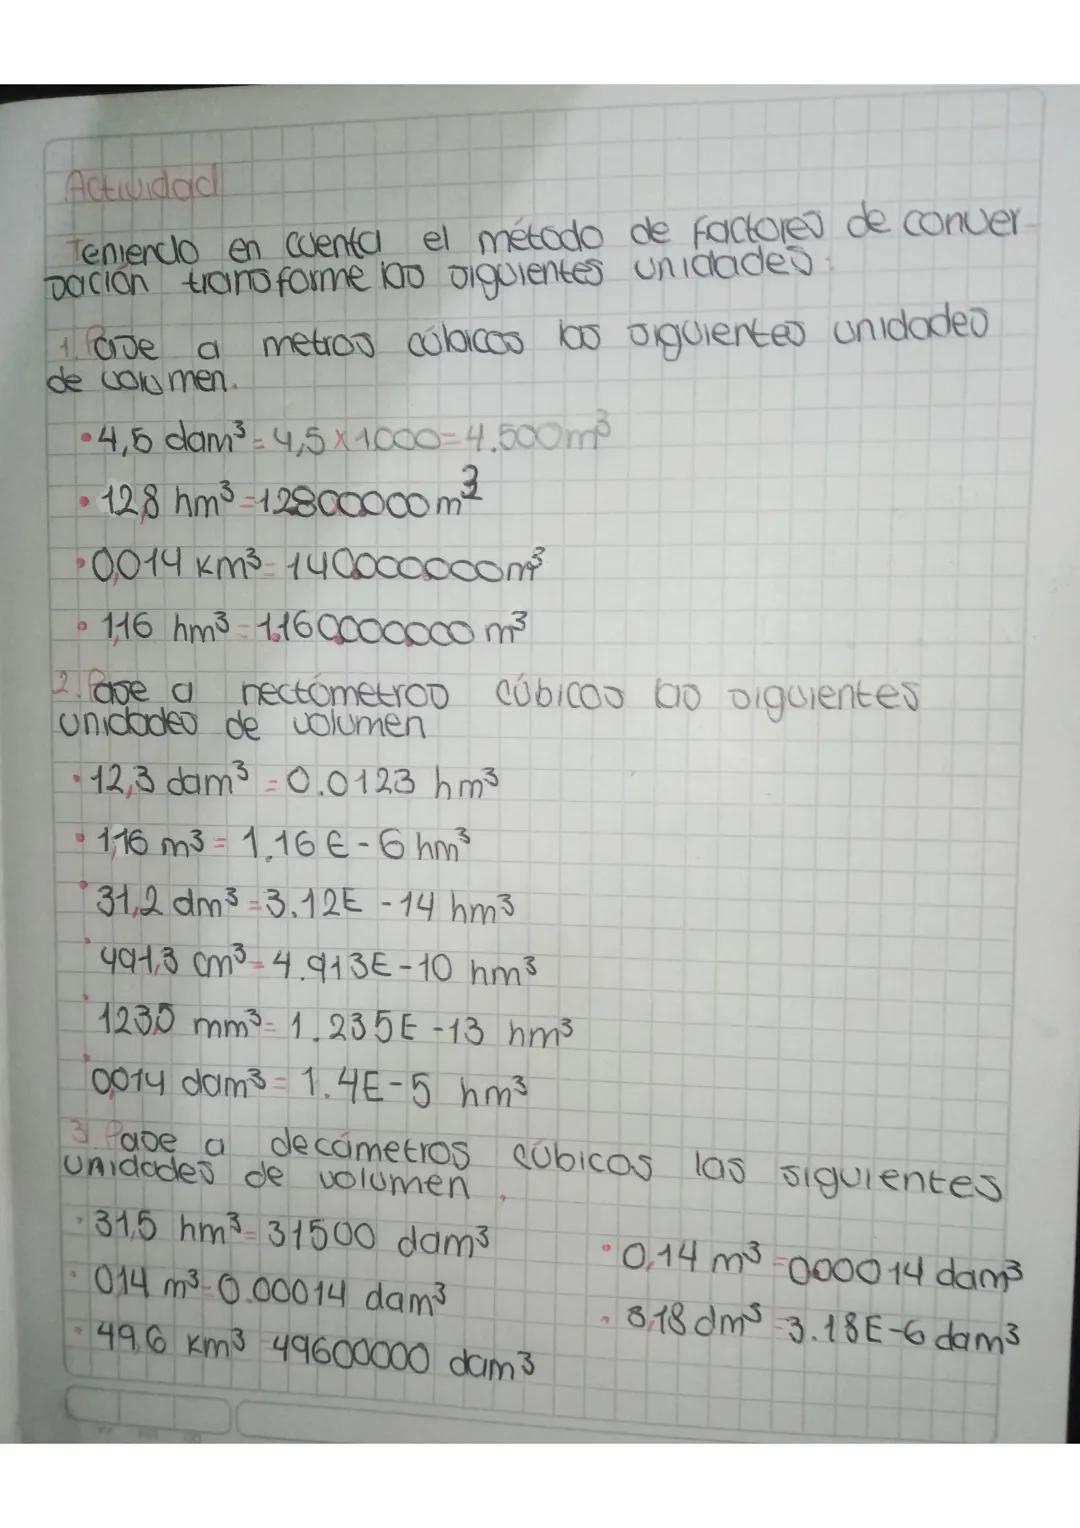 Actividad
Teniendo en cuenta el método de factores de conver
sación transforme las siguientes unidades:
1. Pase a metros cúbicos las siguientes unidades
de volumen.
• 4,5 dam³ = 4,5 x 1000 = 4.500 m³
• 12,8 hm³ = 12800000 m³
• 0,014 km³ = 140000000 m³
• 1,16 hm³ = 1.160000000 m³
2. Pase a hectómetros cúbicos las siguientes
unidades de volumen
• 12,3 dam³ = 0.0123 hm³
• 1,16 m³ = 1.16E-6 hm³
• 31,2 dm³ = 3.12E-14 hm³
• 491,3 cm³ = 4.913E-10 hm³
• 123,5 mm³ = 1.235E-13 hm³
• 0,014 dam³ = 1.4E-5 hm³
3. Pase a decámetros cúbicos las siguientes
unidades de volumen.
• 31,5 hm³ = 31500 dam³
• 0,14 m³ = 0.00014 dam³
• 49,6 km³ 49600000 dam³
• 0,14 m³ = 0,00014 dam³
• 3,18 dm³ = 3.18E-6 dam³